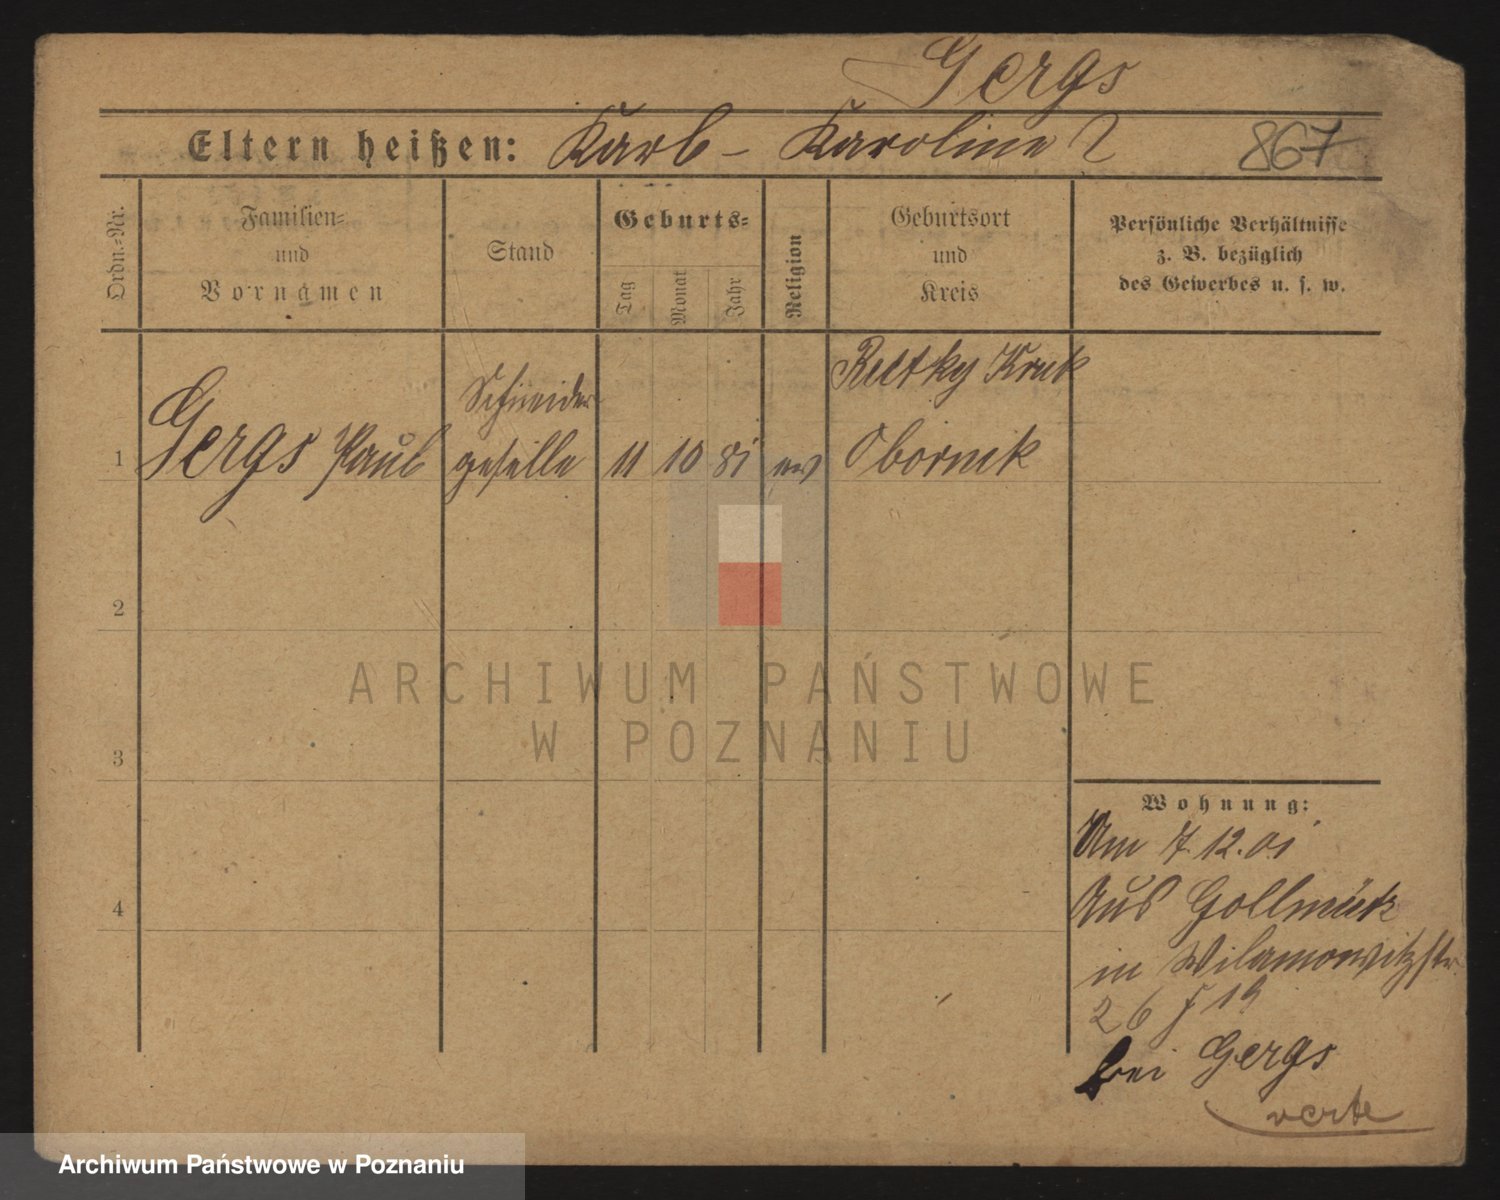 Gergs
Eltern heißen: Karl - Karoline ?
867
Ordn.-Nr.
Familien-
und
Vornamen
Stand
Geburts-
Tag
Monat
Jahr
Religion
Geburtsort
und
Kreis
Persönliche Verhältnisse
z. B. bezüglich
des Gewerbes u. s. w.
1
Gergs Paul
Schneider
geselle
11
10
81
ev
Obornik
2
3
4
Wohnung:
Am 7. 12. 01
Aus Gollmütz
in Wilamowitzstr.
26
bei Gergs
verte
ARCHIWUM PAŃSTWOWE
W POZNANIU
Archiwum Państwowe w Poznaniu